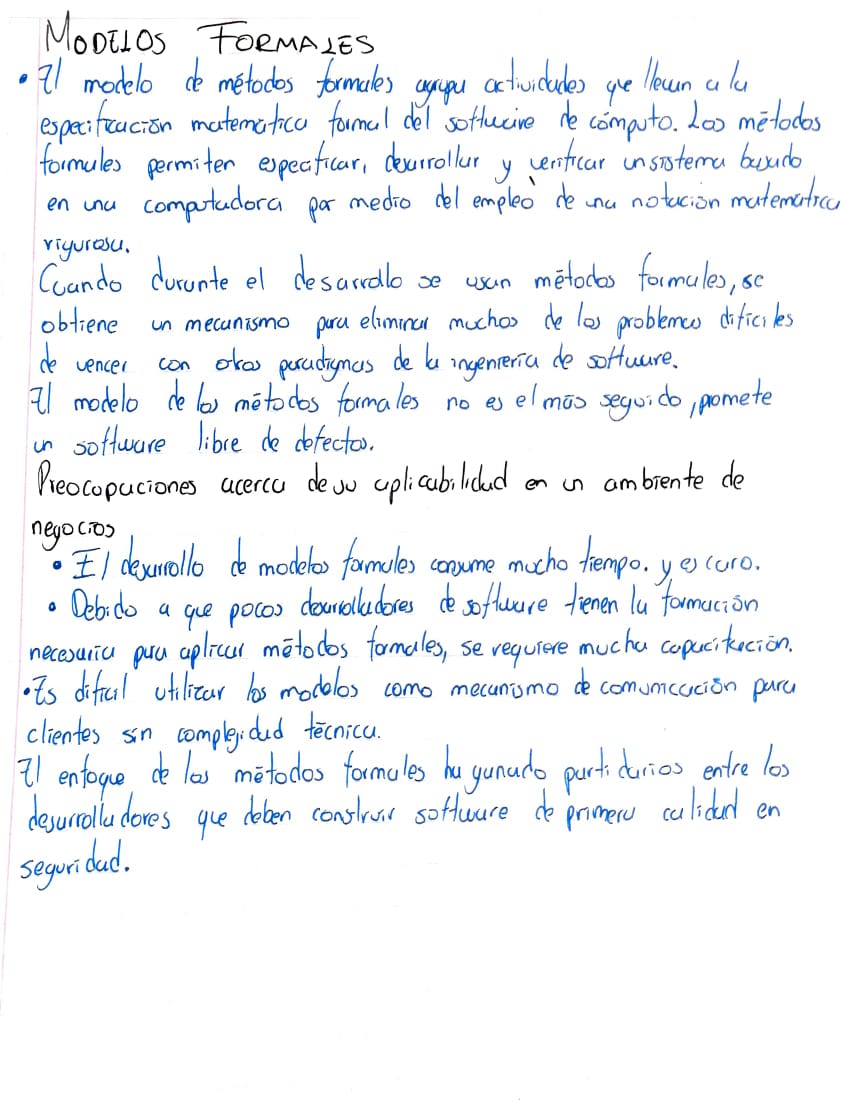 MODELOS FORMALES
• El modelo de métodos formales agrupa actividades que llevan a la
especificación matemática formal del software de cómputo. Los métodos
formales permiten especificar, desarrollar y verificar un sistema basado
en una computadora por medio del empleo de una notación matemática
rigurosa.
Cuando durante el desarrollo se usan métodos formales, se
obtiene un mecanismo para eliminar muchos de los problemas dificiles
de vencer con otros paradigmas de la ingeniería de software.
El modelo de los métodos formales no es el más seguido, promete
un software libre de defectos.
Preocupaciones acerca de su aplicabilidad en un ambiente de
negocios
• El desarrollo de modelos formales consume mucho tiempo. y es caro.
• Debido a que pocos desarrolladores de software tienen la formación
necesaria para aplicar métodos formales, se requiere mucha capacitación.
• Es dificil utilizar los modelos como mecanismo de comunicación para
clientes sin complejidad técnica.
El enfoque de los métodos formales ha ganado partidarios entre los
desarrolladores que deben construir software de primera calidad en
seguridad.